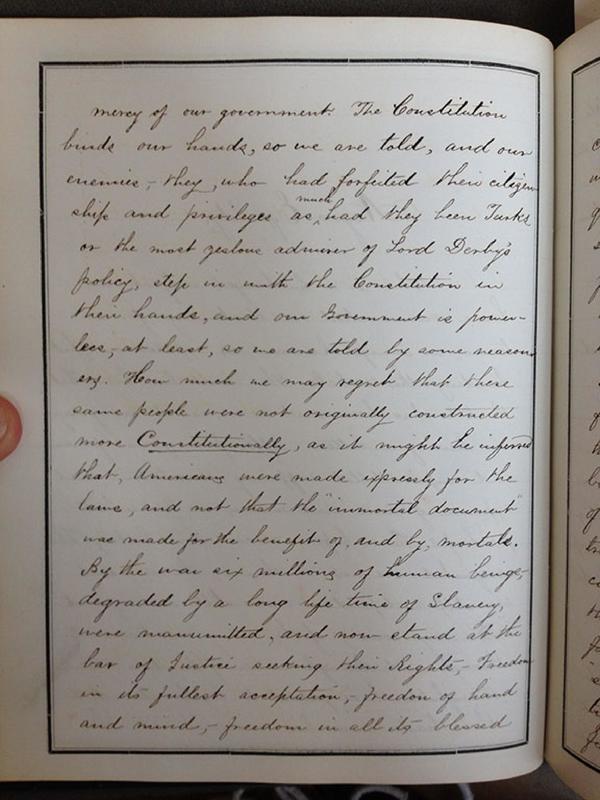 mercy of our government. The Constitution
binds our hands, so we are told, and our
enemies,- they, who had forfeited their citizen
ship and privileges as much had they been Turks
or the most zealous admirer of Lord Derby's
policy, step in with the Constitution in
their hands, and our Government is power-
less,- at least, so we are told by some reason
ers. How much we may regret that these
same people were not originally constructed
more Constitutionally, as it might be inferred
that, Americans were made expressly for the
laws, and not that the "immortal document"
was made for the benefit of, and by, mortals.
By the war six millions of human beings,
degraded by a long life time of Slavery,
were manumitted, and now stand at the
bar of Justice seeking their Rights,- Freedom
in its fullest acceptation,- freedom of hand
and mind,- freedom in all its blessed